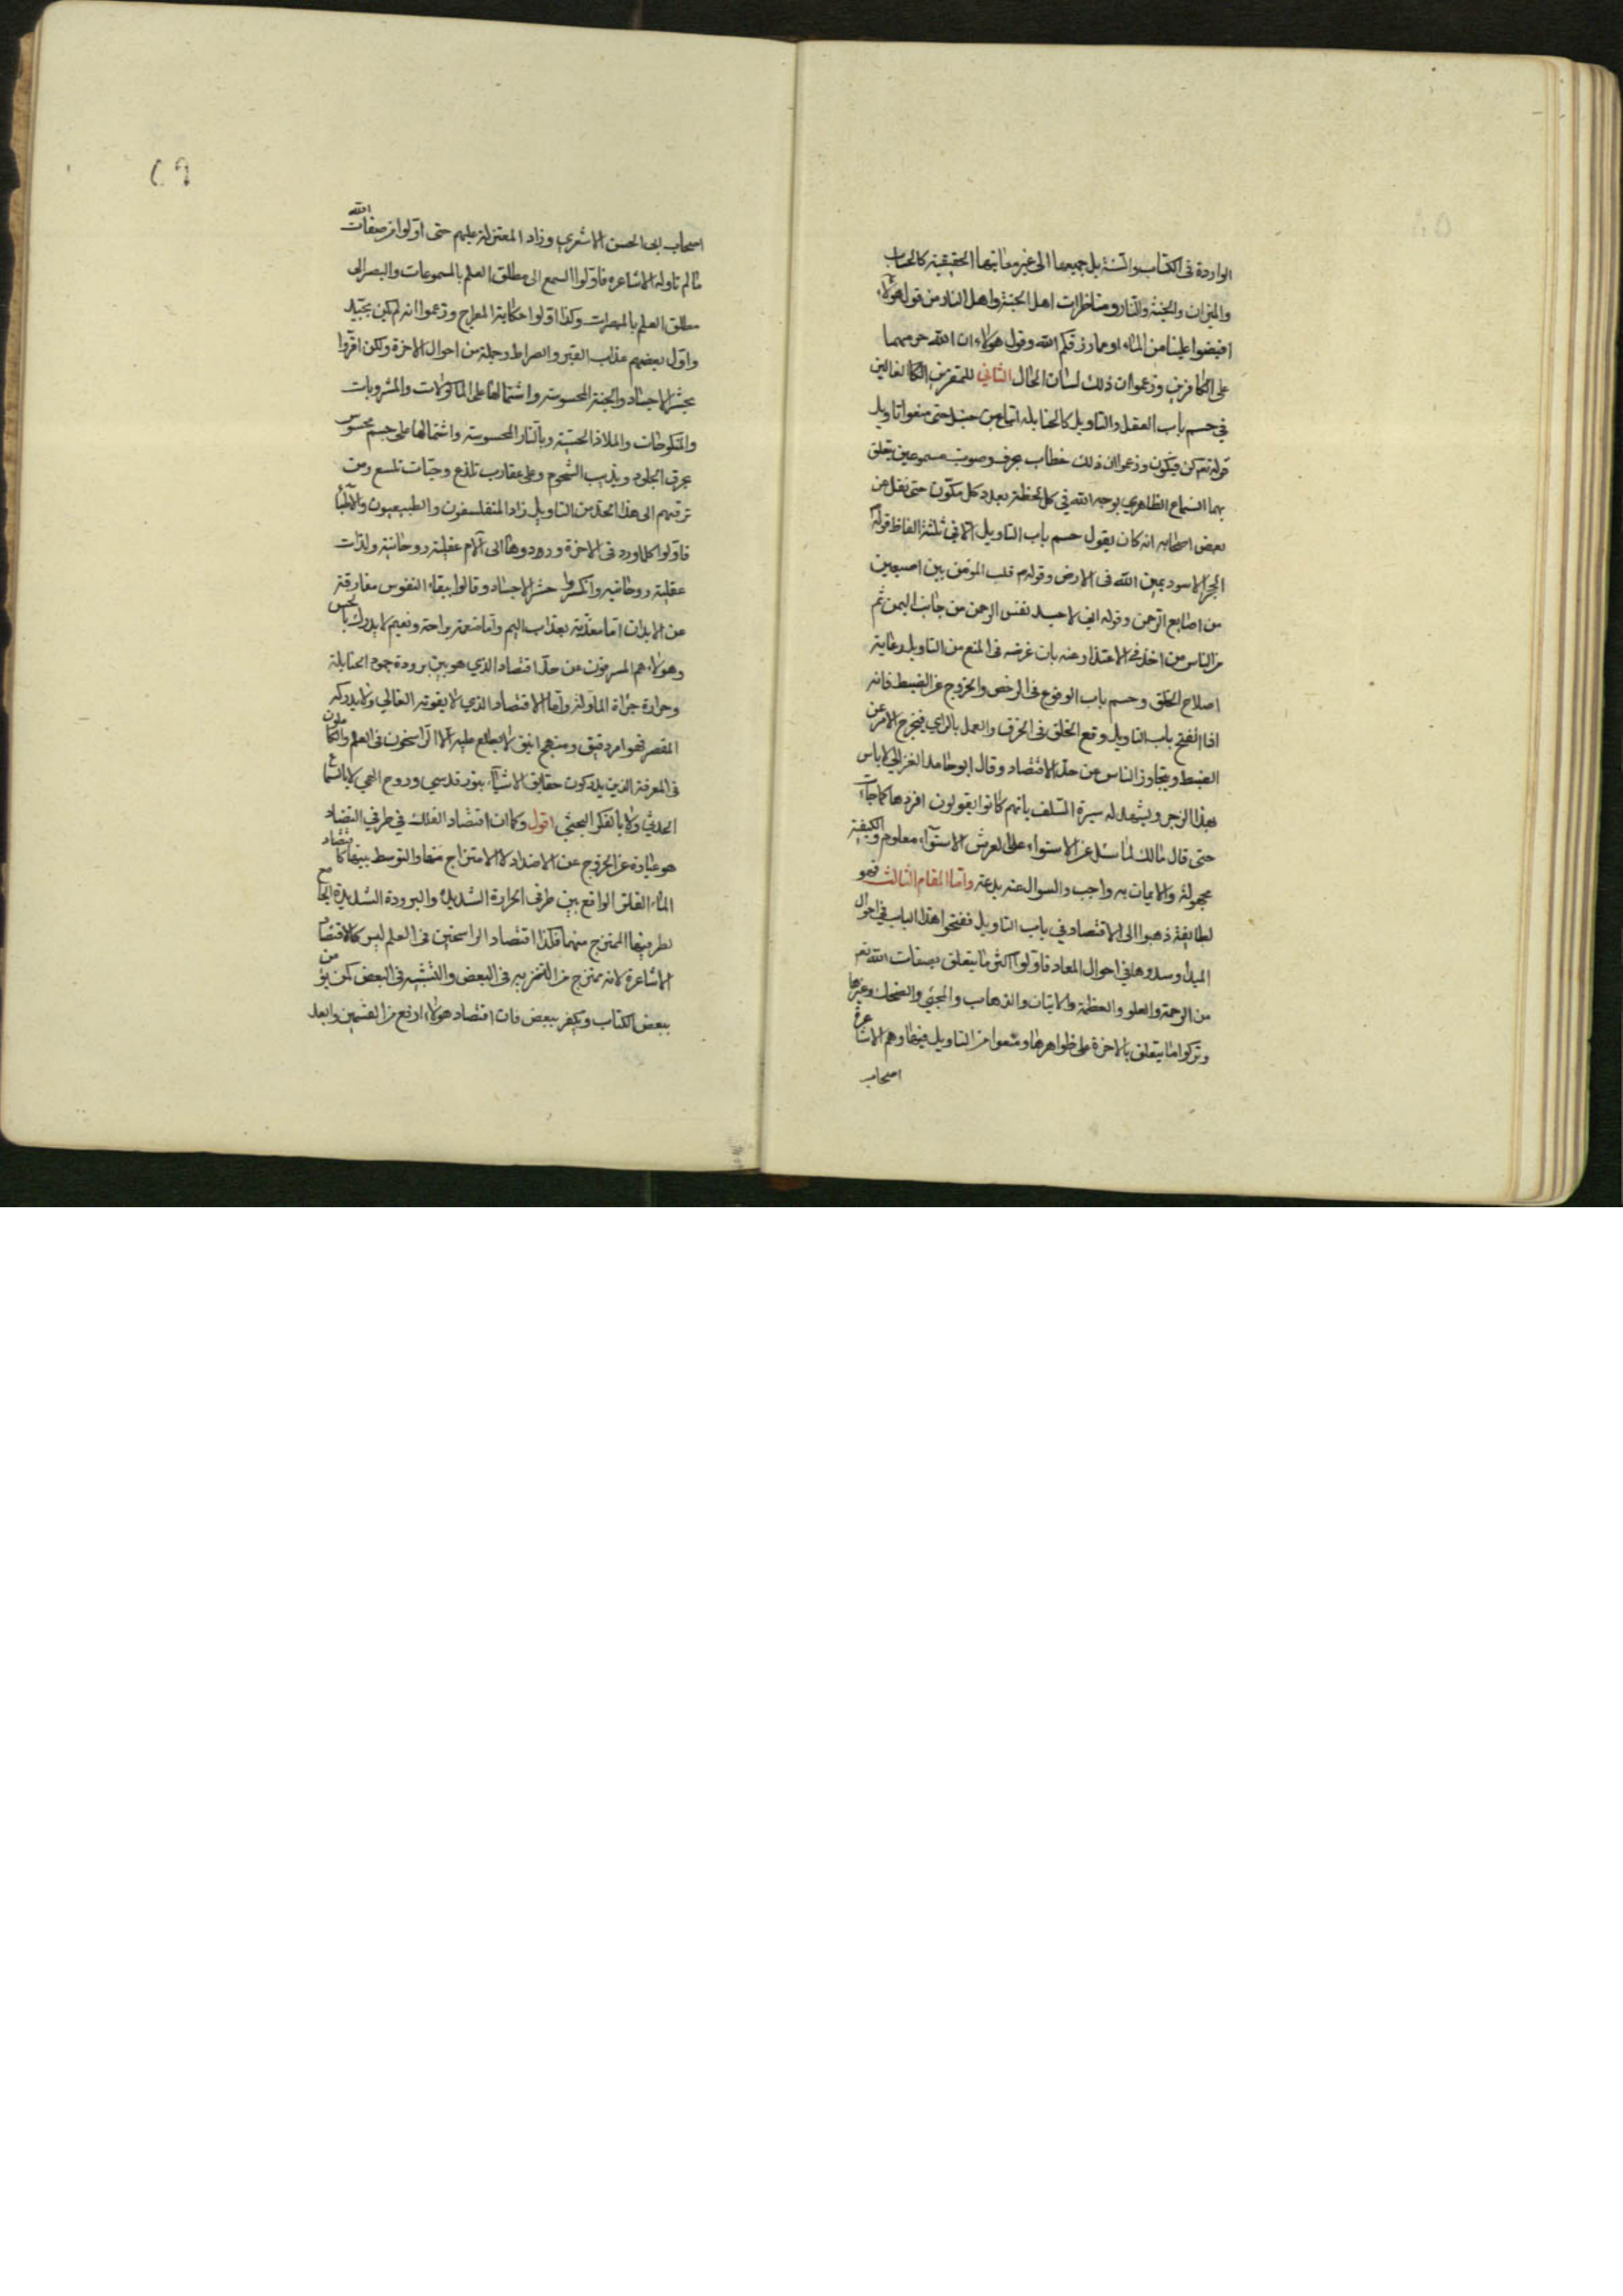 الواردة فى الكتاب والسنة بل جميعها الى غير معانيها الحقيقية كالحساب
والميزان والجنة والنار ومناظرات اهل الجنة واهل النار من قول هؤلاء
افيضوا علينا من الماء او مما رزقكم الله وقول هولاء ان الله حرمهما
على الكافرين وزعموا ان ذلك لسان الحال الثانى للمقترين الغالين
فى حسم باب العقل والتاويل كالحنابله اتباع بن حنبل حتى منعوا تاويل
قوله تعم كن فيكون وزعموا ان ذلك خطاب بحرف وصوت مسموعين يتعلق
بهما السماع الظاهري يوجد الله فى كل لحظة بعدد كل مكون حتى نقل عن
بعض اصحابه انه كان يقول حسم باب التاويل الا فى ثلثة الفاظ قوله
الحجر الاسود يمين الله فى الارض وقوله م قلب المؤمن بين اصبعين
من اصابع الرحمن وقوله انى لاجد نفس الرحمن من جانب اليمن ثم
من الناس من اخذ فى الاعتذار عنه بان غرضه فى المنع من التاويل رعاية
اصلاح الخلق وحسم باب الوقوع فى الرخص والخروج عن الضبط فانه
اذا انفتح باب التاويل وقع الخلق فى الخرق والعمل بالراي فيخرج الامر عن
الضبط ويتجاوز الناس عن حد الاقتصاد وقال ابو حامد الغزالى لا باس
بهذا الزجر ويشهد له سيرة السلف بانهم كانوا يقولون اقروها كما جاءت
حتى قال مالك لما سئل عن الاستواء على العرش الاستواء معلوم والكيفية
مجهولة والايمان به واجب والسوال عنه بدعة واما المقام الثالث فهو
لطايفة ذهبوا الى الاقتصاد فى باب التاويل ففتحوا هذا الباب فى احوال
المبدا وسدوها فى احوال المعاد فاولوا اكثر ما يتعلق بصفات الله تعم
من الرحمة والعلو والعظمة والاتيان والذهاب والمجئ والضحك وغيرها
وتركوا ما يتعلق بالاخرة على ظواهرها ومنعوا من التاويل فيها وهم الاشاعرة
اصحاب
اصحاب ابى الحسن الاشعري وزاد المعتزلة عليهم حتى اولوا من صفات الله
ما لم تاوله الاشاعره فاولوا السمع الى مطلق العلم بالمسموعات والبصر الى
مطلق العلم بالمبصرات وكذا اولوا حكاية المعراج وزعموا انه لم يكن بجسد
واول بعضهم عذاب القبر والصراط وجملة من احوال الاخرة ولكن اقروا
بحشر الاجساد والجنة المحسوسة واشتمالها على الماكولات والمشروبات
والمنكوحات والملاذ الحسية وبالنار المحسوسة واشتمالها على جسم محسوس
يحرق الجلود ويذيب الشحوم وعلى عقارب تلذع وحيات تلسع ومن
ترقيهم الى هذا الحد من التاويل زاد المتفلسفون والطبيعيون والاطباء
فاولوا كلما ورد فى الاخرة وردوها الى آلام عقلية روحانية ولذات
عقلية روحانيه وانكروا حشر الاجساد وقالوا ببقاء النفوس مفارقة
عن الابدان اما معذبة بعذاب اليم واما منعمة براحة ونعيم لا يدرك بالحس
وهولاء هم المسرفون عن حد اقتصاد الذي هو بين برودة جمود الحنابلة
وحرارة جراة الماولة واما الاقتصاد الذي لا يفوته الغالي ولا يدركه
المقصر فهو امر دقيق ومنهج انيق لا يطلع عليه الا الراسخون فى العلم والكاملون
فى المعرفة الذين يدركون حقايق الاشياء بنور قدسي وروح الهي لا بالسماع
الحديثي ولا بالفكر البحثي اقول وكما ان اقتصاد الفلك فى طرفى التضاد
هو عبارة عن الخروج عن الاضداد لا الامتزاج منها والتوسط بينها كاقتصاد
الماء الفاتر الواقع بين طرفى الحرارة الشديدة والبرودة الشديدة الجامع
لطرفيها الممتزج منهما فكذا اقتصاد الراسخين فى العلم ليس كاقتصاد
الاشاعرة لانه ممتزج من التنزيه فى البعض والتشبيه فى البعض كمن يؤمن
ببعض الكتاب ويكفر ببعض فان اقتصاد هولاء ارفع من القسمين وابعد